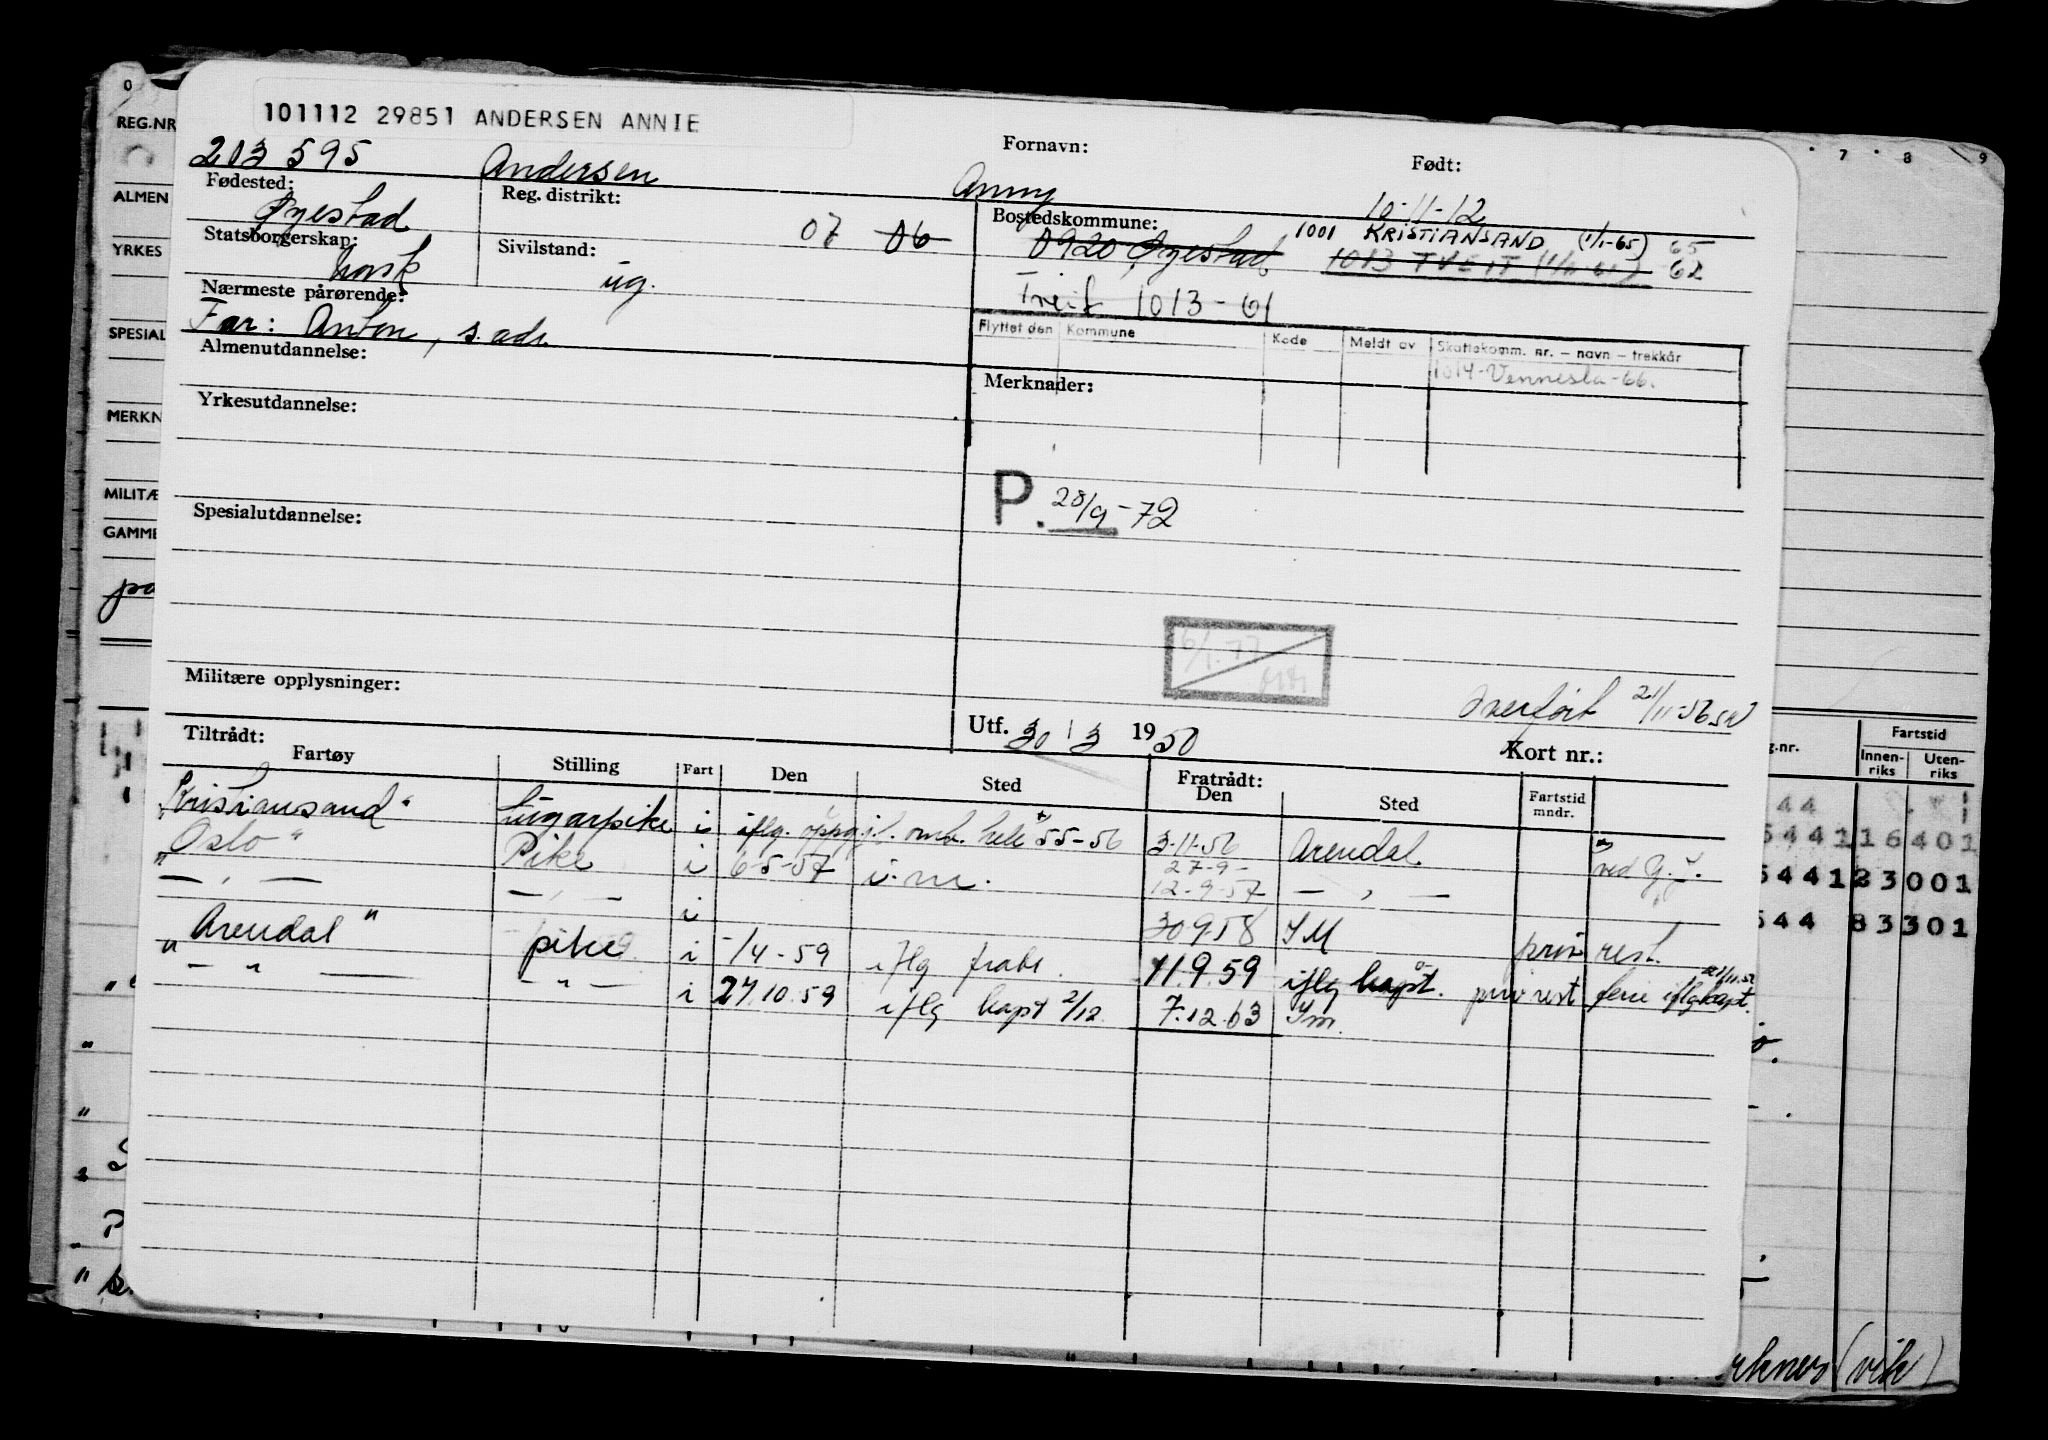 101112 29851 ANDERSEN ANNIE
Fornavn: Født:
203 595 Andersen Anny 10-11-12
Fødested: Reg. distrikt: Bostedskommune:
Øyestad 07 06 0920 Øyestad 1001 KRISTIANSAND (1/1-65) 65
Statsborgerskap: Sivilstand: 1013 TVEIT 62
norsk ug. Tveit 1013-61
Nærmeste pårørende:
Far: Anton, s. adr.
Flyttet den Kommune Kode Meldt av Skattekomm. nr. – navn – trekkår
1014-Vennesla-66.
Almenutdannelse: Merknader:
Yrkesutdannelse:
P. 28/9-72
Spesialutdannelse:
6/1.77
Militære opplysninger: Overført 21/11-56
Utf. 30/3 1950 Kort nr.:
Tiltrådt: Fratrådt:
Fartøy Stilling Fart Den Sted Den Sted Fartstid mndr.
"Kristiansand" Lugarpike i iflg. oppgj.l. omb. hele 55-56 3-11-56 Arendal ved
"Oslo" Pike i 6-5-57 i.m. 27-9-
12-9-57
— " — — " — i 30958 IM priv rest.
"Arendal" pike i -/4-59 iflg frabr. 11.9.59 iflg kapt. priv rest ferie iflg kapt.
— " — — " — i 27.10.59 iflg kapt 2/12. 7.12.63 Im.
REG.NR
ALMEN
YRKES
SPESIAL
MERKN
MILITÆ
GAMME
7 8 9
g.nr. Fartstid
Innenriks Utenriks
44
5441 16 401
5441 23 001
544 83 301
(vik)